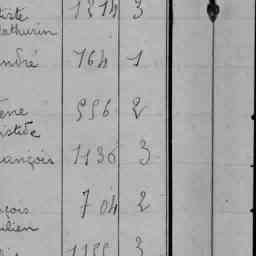 tiste 1314 3
Mathurin
André 164 1
ène 996 2
istide
ançois 1136 3
çois 704 2
ulien
1199 3